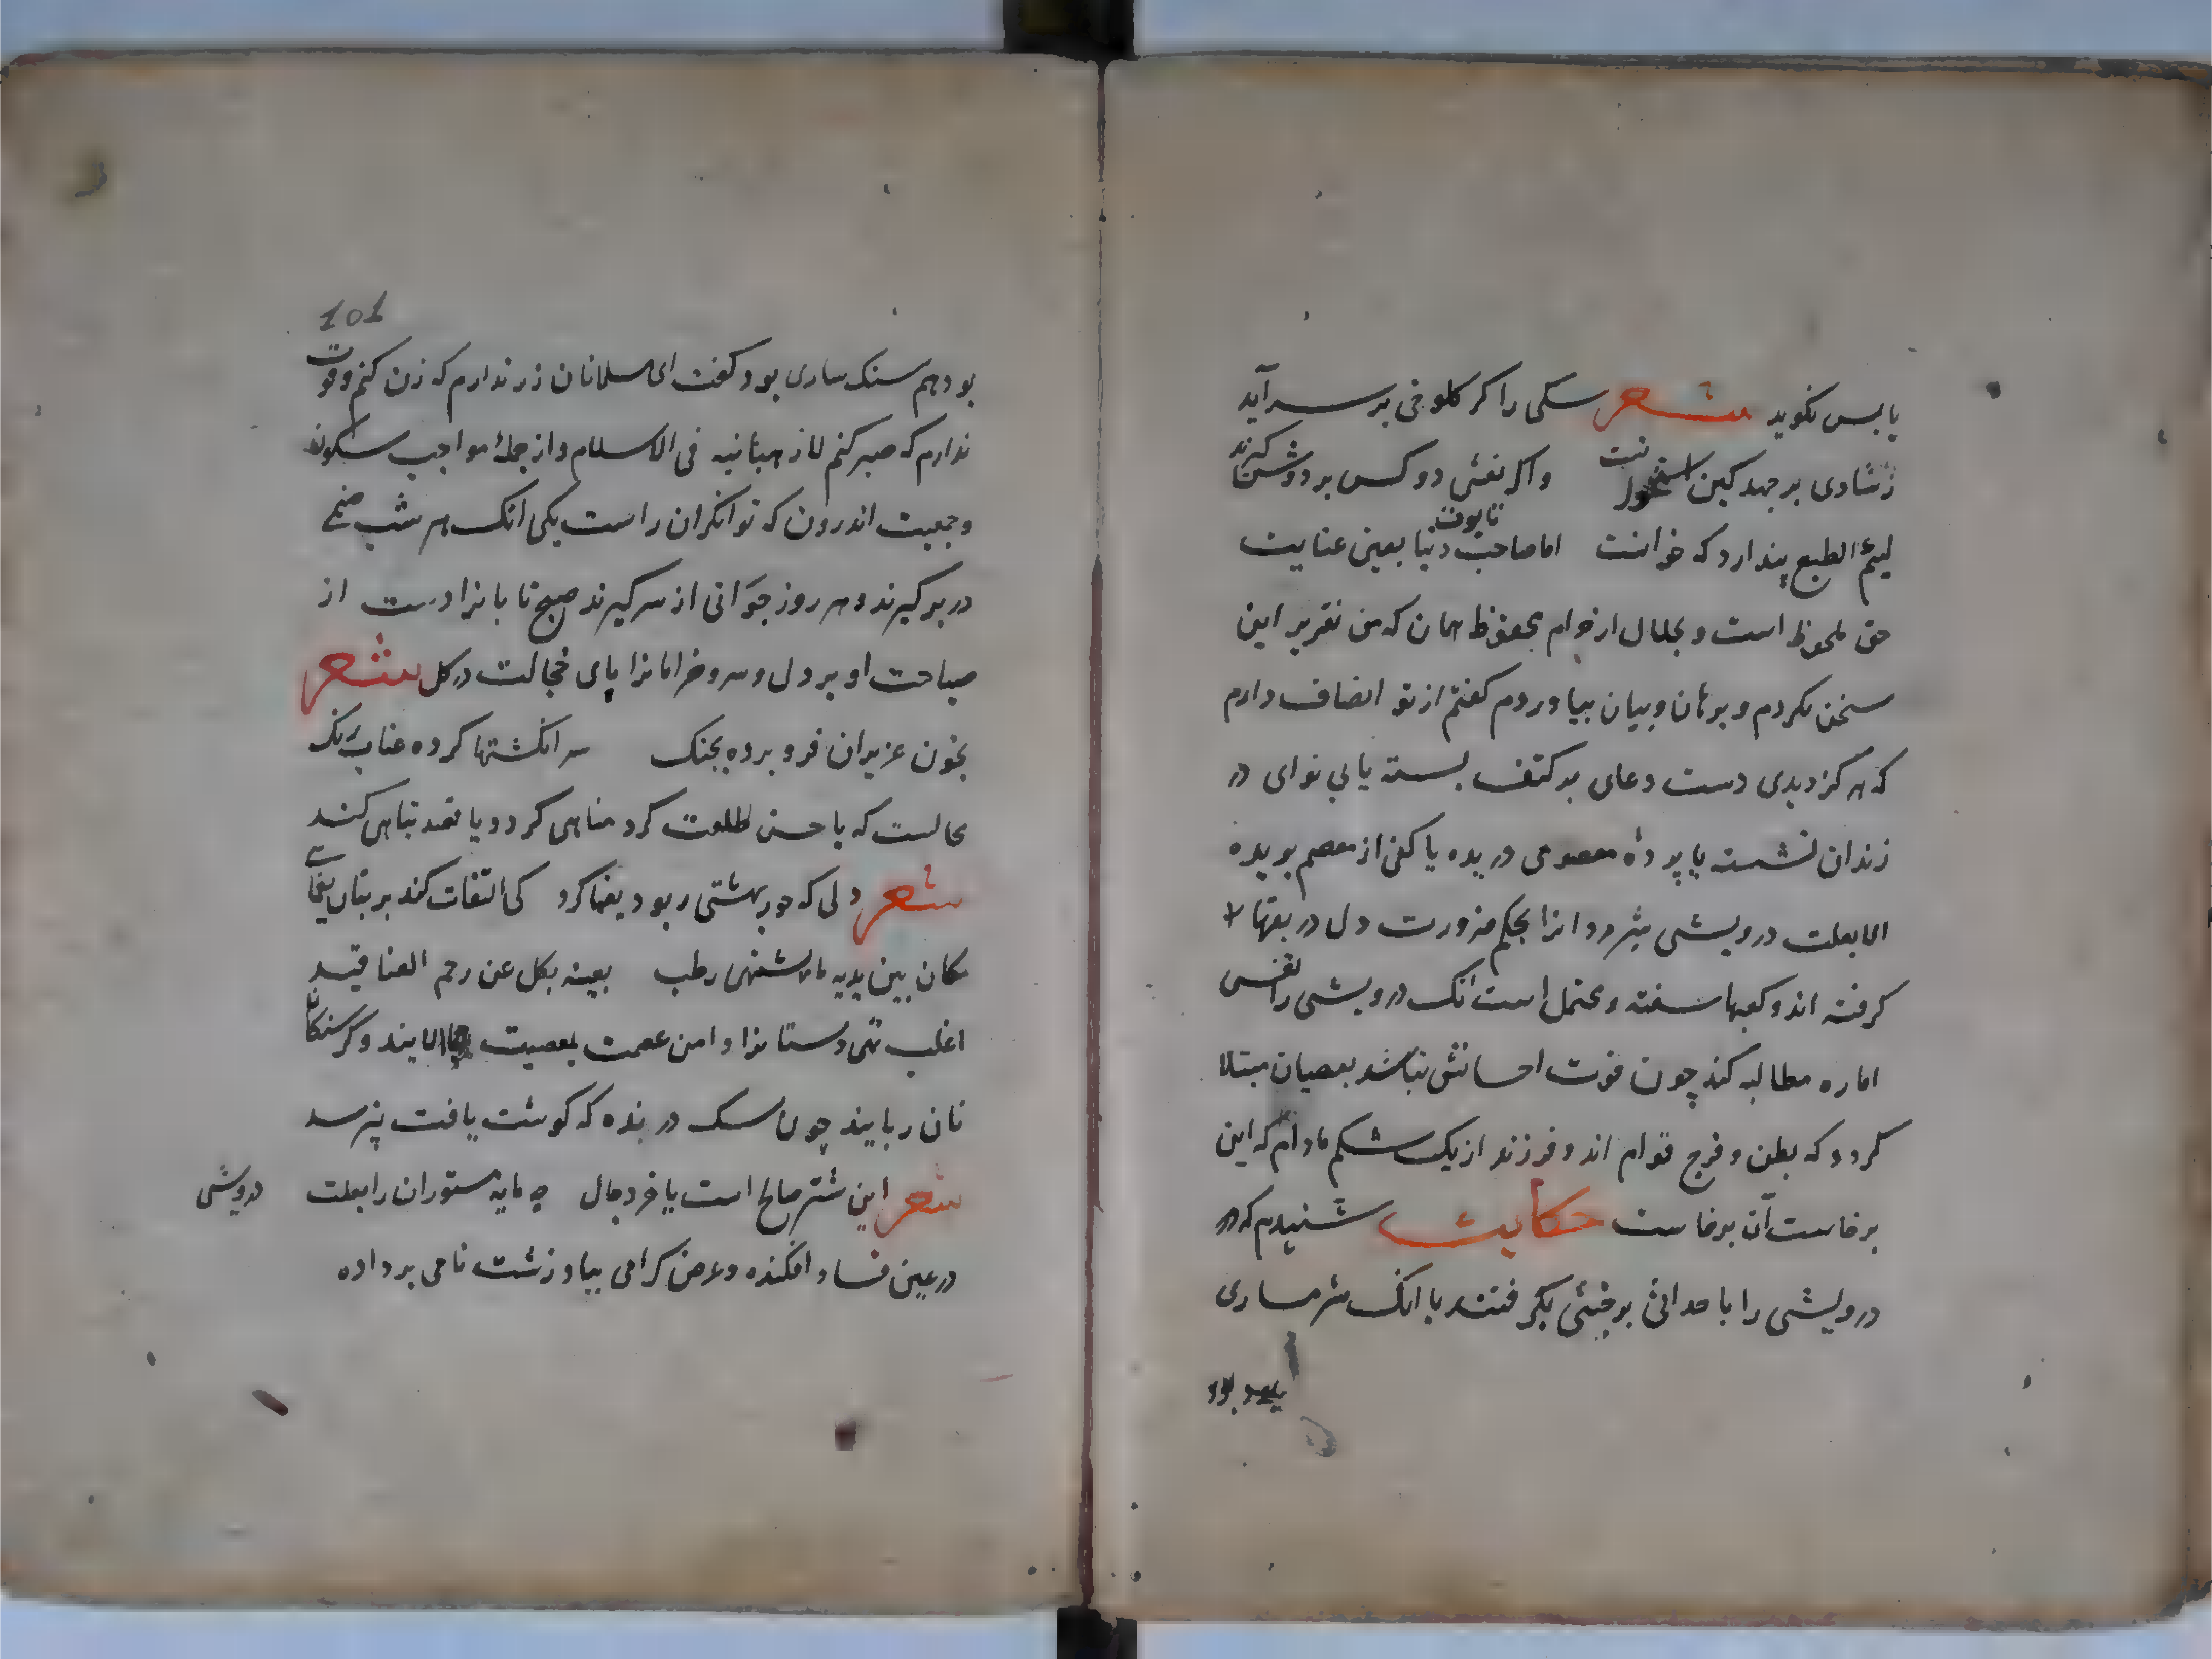 یابس نکوید شعر سکی را کر کلوخی بر سر آید
ز شادی بر جهد کین استخوانست واکر نعشی دو کس بر دوش کیرند
لیئم الطبع پندارد که خوانست اما صاحب دنیا بعین عنایت
حق ملحوظ است و بحلال از حرام محفوظ همان که من تقریر این
سخن نکردم و برهان و بیان بیاوردم کفتم از تو انصاف دارم
که هرکز دیدی دست دعای بر کتف بسته یا بی نوای در
زندان نشسته یا پردهٔ معصومی دریده یا کفی از معصم بریده
الا بعلت درویشی شیر مردانرا بحکم ضرورت دل در نقبها
کرفته اند و کعبها سفته و محتمل است انک درویشی را نفس
اماره مطالبه کند چون قوت احسانش نباشد بعصیان مبتلا
کردد که بطن و فرج توام اند و فرزند از یک شکم مادام که این
برخاست آن برخاست حکایت شنیدم که در
درویشی را با حدائی بر خبثی بکرفتند با انک شرمساری
بود
101
بود هم سنک ساری بود کفت ای مسلمانان زر ندارم که زن کنم و قوت
ندارم که صبر کنم لا رهبانیه فی الاسلام و از جملهٔ مواجب سکون
و جمعیت اندرون که توانکران راست یکی انک هر شب صنمی
در بر کیرند و هر روز جوانی از سر کیرند صبح تابانرا دست از
صباحت او بر دل و سرو خرامانرا پای خجالت در کل شعر
بخون عزیزان فرو برده بجنک سر انکشتها کرده عناب رنک
محالست که با حسن طلعت کرد مناهی کردد یا قصد تباهی کند
شعر دلی که حور بهشتی ربود یغما کرد کی التفات کند بر بتان یغمای
مکان بین یدیه ما اشتهی رطب یغنیه بکل عن رجم العناقید
اغلب تهی دستانرا دامن عصمت بمعصیت الایند و کرسنکان
نان ربایند چون سک درنده که کوشت یافت نپرسد
شعر این شتر صالح است یا خر دجال چه مایه مستوران را بعلت درویشی
در عین فساد افکنده و عرض کرامی بباد زشت نامی بر داده